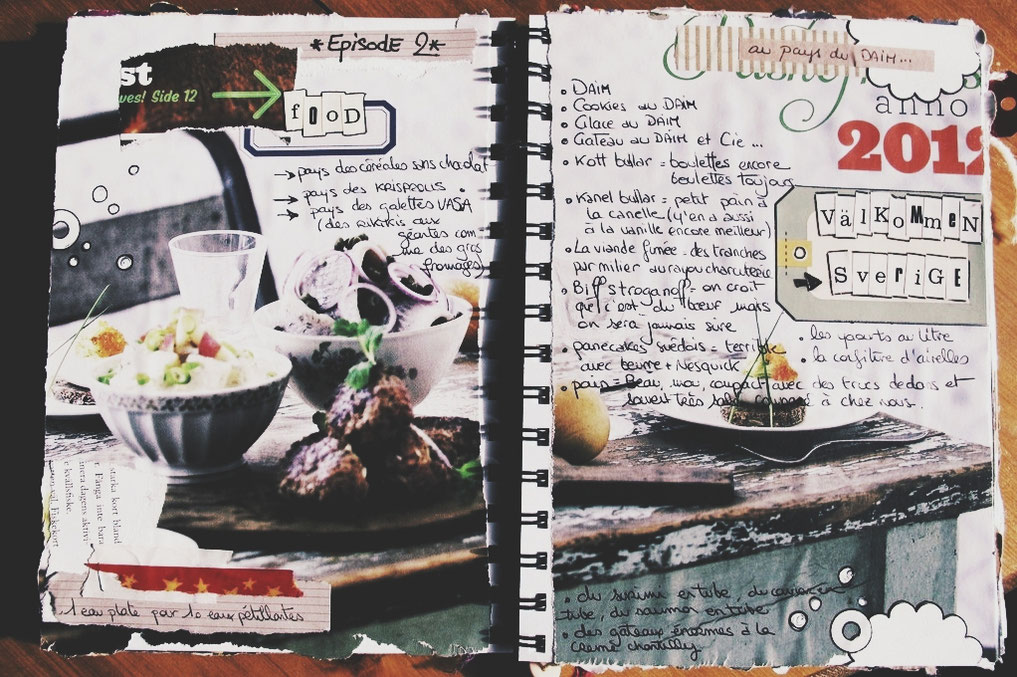 *EPISODE 2*
st
ves! Side 12
fooD
→ pays des céréales sans chocolat
→ pays des KRISPROLLS
→ pays des galettes VASA
géantes com
me des gros
fromages)
starka kort bland
r. Fånga inte bara
inera dagens aktivi
e kvällsfiske.
1 eau plate par 10 eaux pétillantes
au pays du DAIM...
anno
2012
VälKommeN
SveriGE
• DAIM
• Cookies au DAIM
• Glace au DAIM
• Gateau au DAIM et Cie ...
• Kött bullar = boulettes encore
boulettes toujours
• Kanel bullar = petit pain à
la canelle (y'en a aussi
à la vanille encore meilleur)
• La viande fumée = des tranches
par milier au rayon charcuterie
• Biff stroganoff = on croit
que c'est du bœuf mais
on sera jamais sûre
• panecakes suédois = terrible
avec beurre + Nesquick
• pain = Beau, mou, compact avec des trucs dedans et
souvent très salé comparé à chez nous.
• les yaourts au litre
• la confiture d'airelles
• du surimi en tube, du caviar en
tube, du saumon en tube
• des gâteaux énormes à la
crème chantilly